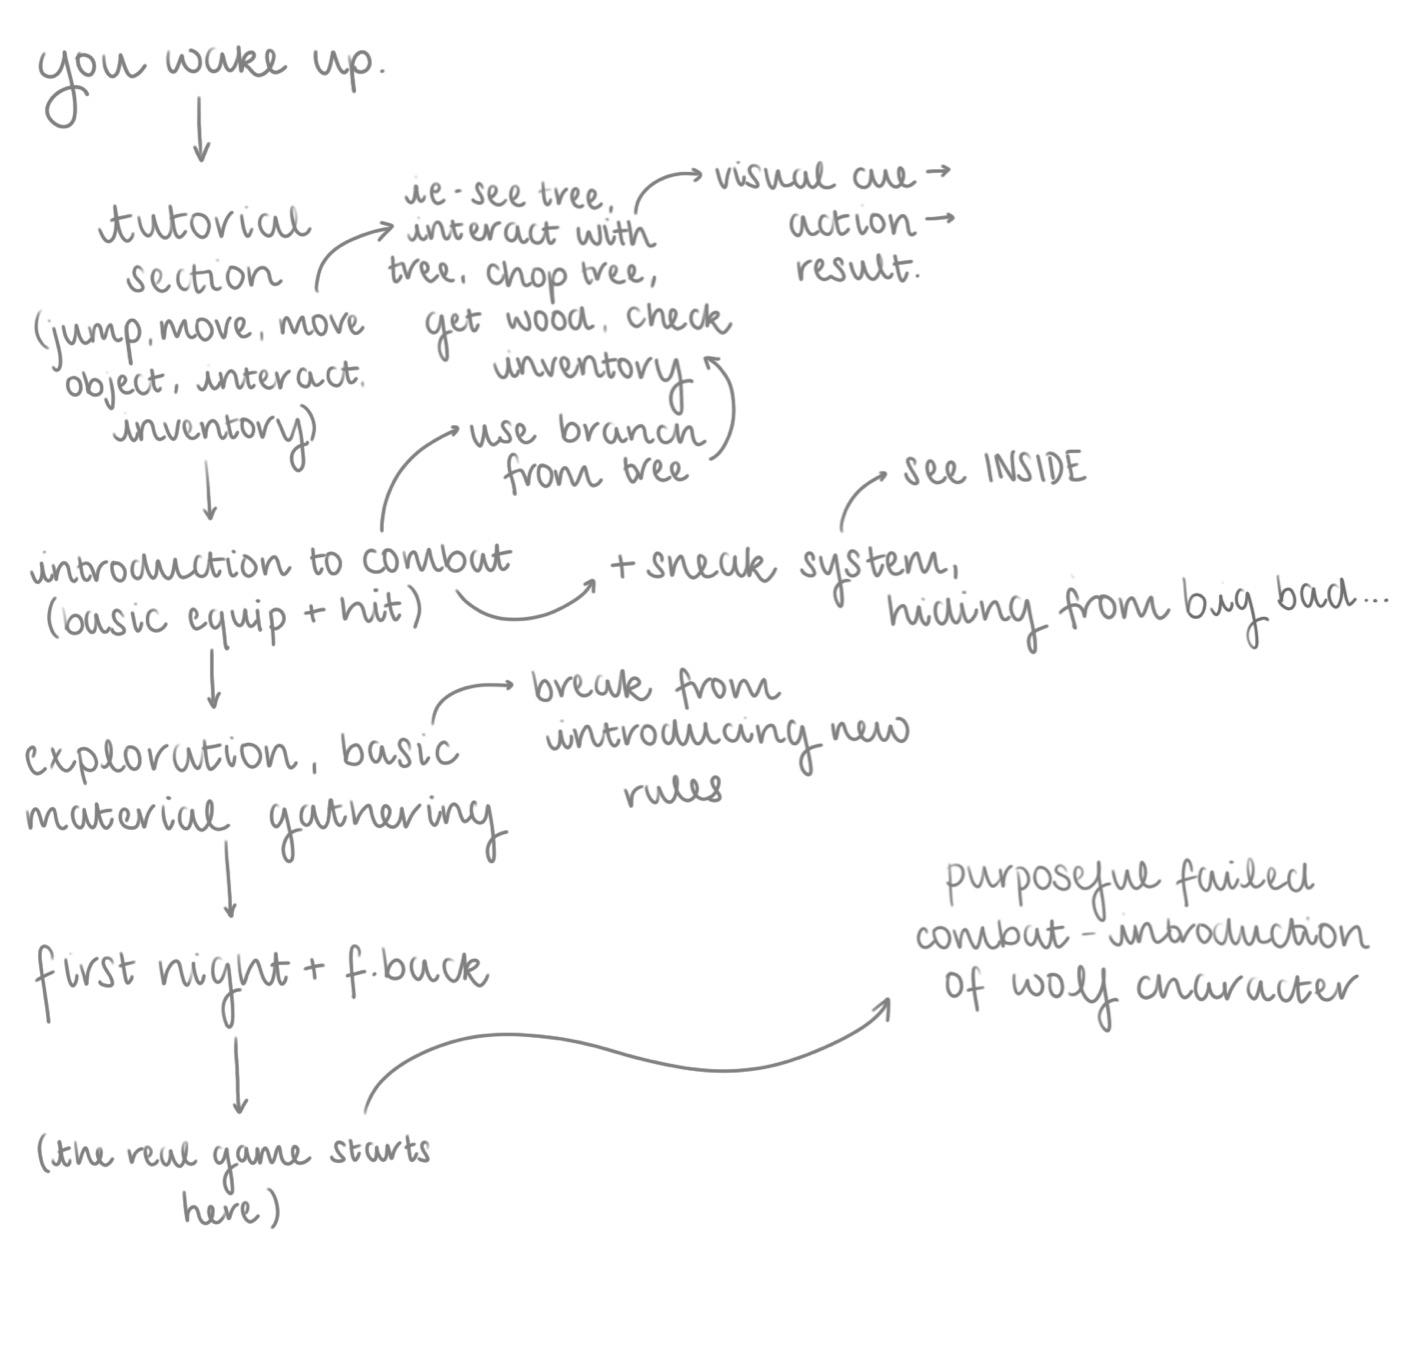 you wake up.
tutorial
section
(jump, move, move
object, interact.
inventory)
ie - see tree,
interact with
tree, chop tree,
get wood, check
inventory
visual cue →
action →
result.
introduction to combat
(basic equip + hit)
use branch
from tree
+ sneak system,
hiding from big bad...
see INSIDE
exploration, basic
material gathering
break from
introducing new
rules
first night + f.back
(the real game starts
here)
purposeful failed
combat - introduction
of wolf character